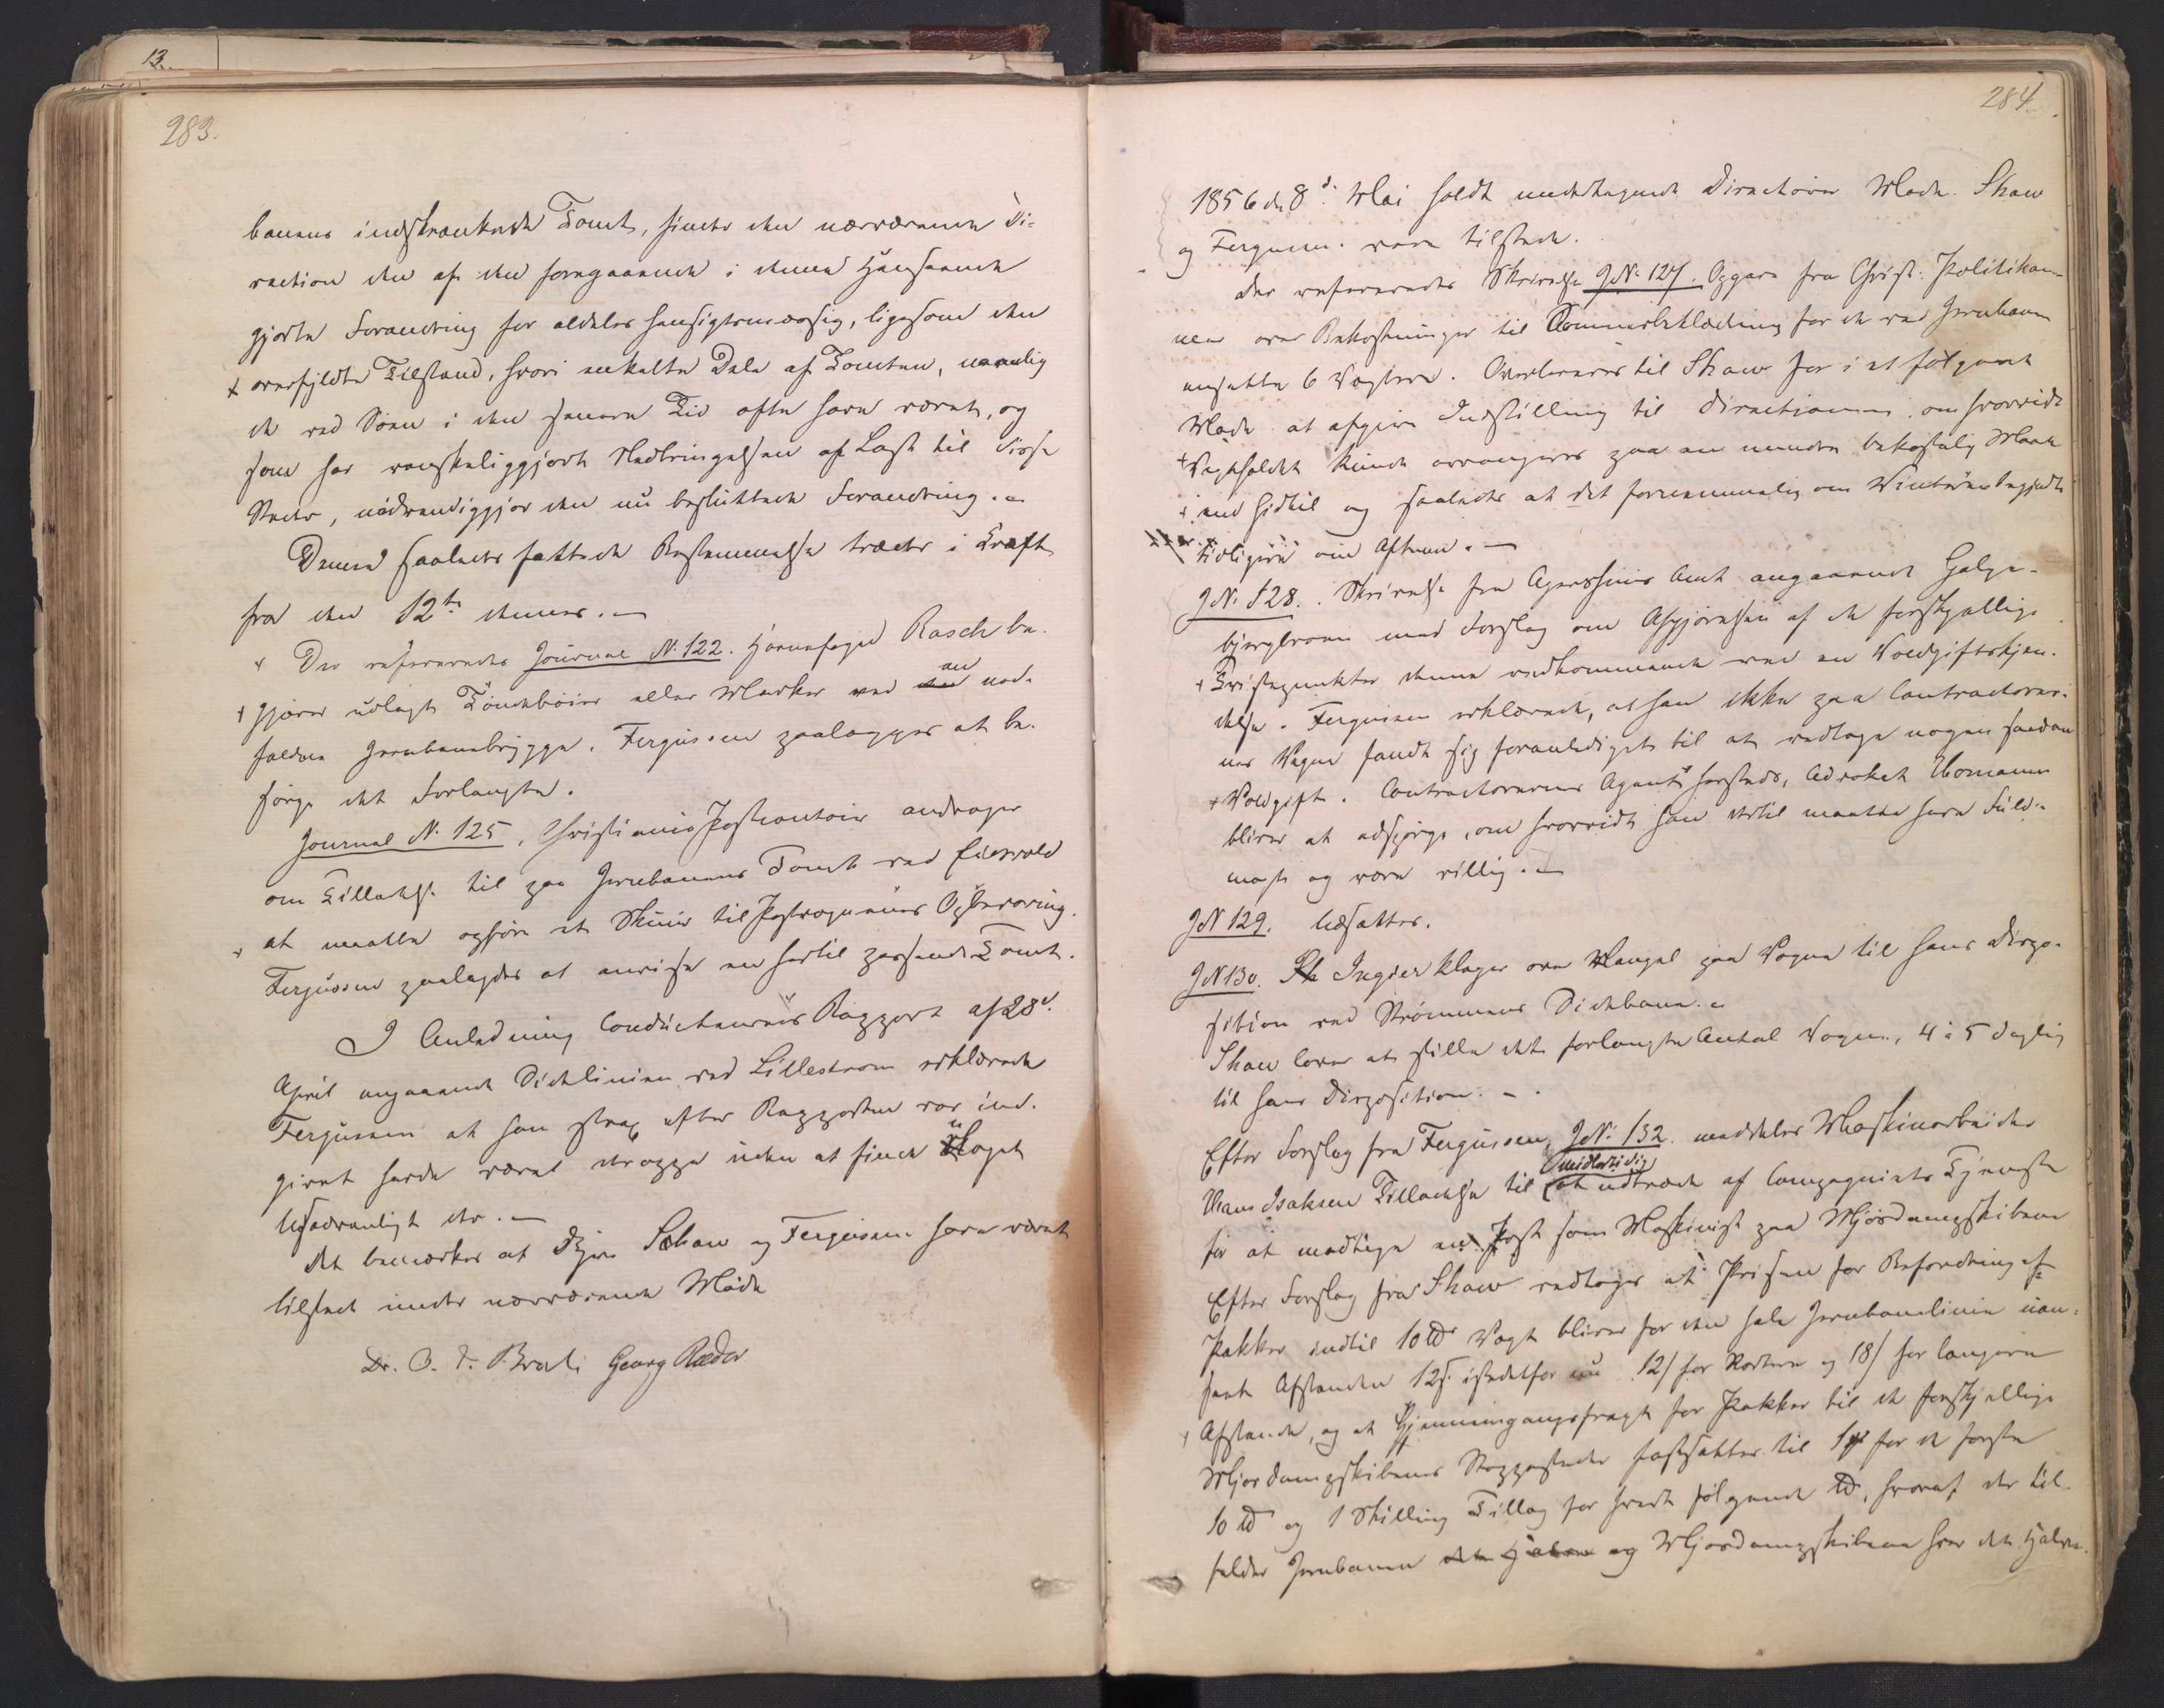 13.
283.
banens indskrænkede Tomt, finder den nærværende Di-
rection den af den foregaaende i denne Henseende
gjorte Forandring for aldeles hensigtsmæssig, ligesom den
overfyldte Tilstand, hvori enkelte Dele af Tomten, navnlig
de ved Søen i den senere Tid ofte have været, og
som har vanskeliggjort Nedbringelsen af Last til disse
Steder, nødvendiggjør den nu besluttede Forandring.
Denne saaledes fattede Bestemmelse træder i Kraft
fra den 12te dennes.
Der refereredes Journal N. 122. Havnefoged Rasch be-
gjærer udlagt Töndebøier eller Mærker ved en ned-
falden Jernbanebrygge. Fergusson paalægges at be-
sørge det Forlangte.
Journal N. 125, Christiania Postcontoir andrager
om Tilladelse til paa Jernbanens Tomt ved Eidsvold
at maatte opføre et Skuur til Postvognenes Opbevaring.
Fergusson paalagdes at anvise en hertil passende Tomt.
I Anledning Conducteurens Rapport af 28de
April angaaende Sidelinien ved Lillestrøm erklærede
Fergusson at han strax efter Rapporten var ind-
givet havde været deroppe uden at finde Noget
usædvanligt der.
Det bemærkes at DHrr Schaw og Fergusson have været
tilstede under nærværende Møde
Dr. O. J. Broch Georg Ræder
284.
1856 den 8de Mai holdt undertegnede Directører Møde. Shaw
og Fergusson vare tilstede.
Der refereredes Skrivelse JN: 127. Opgave fra Christ: Politikam-
mer over Bekostninger til Sommerbeklædning for de ved Jernbanen
ansatte 6 Vægtere. Overleveres til Shaw for i et følgende
Møde at afgive Indstilling til Directionen, om hvorvidt
Vagtholdet kunde arrangeres paa en mindre bekostelig Maade
end hidtil og saaledes at det fornemmelig om Vinteren begyndte
tidligere om Aftenen.
JN. 128. Skrivelse fra Agershuus Amt angaaende Galge-
bjergbroen med Forslag om Afgjørelsen af de forskjellige
Tvistepunkter denne vedkommende ved en Voldgiftskjen-
delse. Fergusson erklærede, at han ikke paa Contractorer-
nes Vegne fandt sig foranlediget til at vedtage nogen saadan
Voldgift. Contractorernes Agent hersteds, Advokat Homann
bliver at adspørge, om hvorvidt han dertil maatte have Fuld-
magt og være villig.
JN 129. Udsættes.
JN 130. Ingier klager over Mangel paa Vogne til hans Dispo-
sition ved Strømmens Sidebane.
Shaw lover at stille det forlangte Antal Vogne, 4 à 5 daglig
til hans Disposition.
Efter Forslag fra Fergusson, JN: 132. meddeles Maskinarbeider
Hans Isaksen Tilladelse til midlertidig at udtræde af Compagniets Tjeneste
for at modtage en Post som Maskinist paa Mjøsdampskibene
Efter Forslag fra Shaw vedtoges at Prisen for Befordring af
Pakker indtil 10 ℔ Vægt bliver for den hele Jernbanelinie uan-
seet Afstanden 12ß. istedetfor nu 12ß for kortere og 18ß for længere
Afstande, og at Gjennemgangsfragt for Pakker til de forskjellige
Mjøsdampskibenes Stoppesteder fastsættes til for de første
10 ℔ og 1 Skilling Tillæg for hvert følgende ℔, hvoraf der til-
falder Jernbanen det Halve og Mjøsdampskibene hver det Halve.